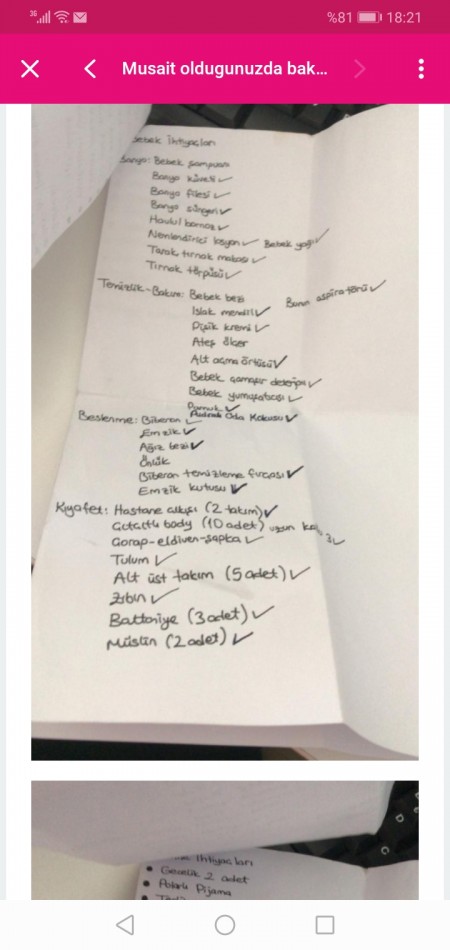 3G %81 18:21
Musait oldugunuzda bak...
Bebek İhtiyaçları
Banyo: Bebek şampuanı
Banyo küveti ✓
Banyo filesi ✓
Banyo süngeri ✓
Havlu/bornoz ✓
Nemlendirici losyon ✓ Bebek yağı ✓
Tarak, tırnak makası ✓
Tırnak törpüsü ✓
Temizlik-Bakım: Bebek bezi Burun aspiratörü ✓
Islak mendil ✓
Pişik kremi ✓
Ateş ölçer
Alt açma örtüsü ✓
Bebek çamaşır deterjanı ✓
Bebek yumuşatıcısı ✓
Pamuk ✓
Oda Kokusu ✓
Beslenme: Biberon ✓
Emzik ✓
Ağız bezi ✓
Önlük
Biberon temizleme fırçası ✓
Emzik kutusu ✓
Kıyafet: Hastane çıkışı (2 takım) ✓
Çıtçıtlı body (10 adet) uzun kol 3 ✓
Çorap-eldiven-şapka ✓
Tulum ✓
Alt üst takım (5 adet) ✓
Zıbın ✓
Battaniye (3 adet) ✓
Müslin (2 adet) ✓
İhtiyaçları
• Gecelik 2 adet
• Polarlı Pijama